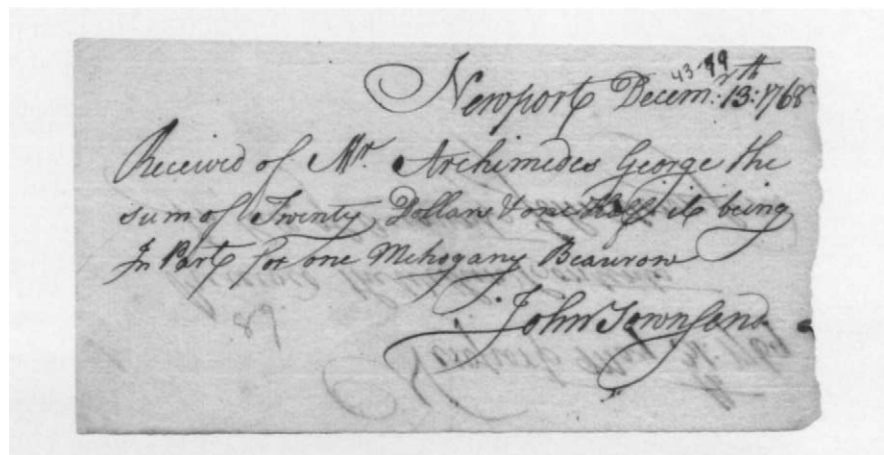 43-99
Newport Decem:r 13:th 1768
Received of Mr. Archimedes George the
sum of Twenty Dollars & one Half it being
In Part for one Mehogany Beaurow
John Townsend